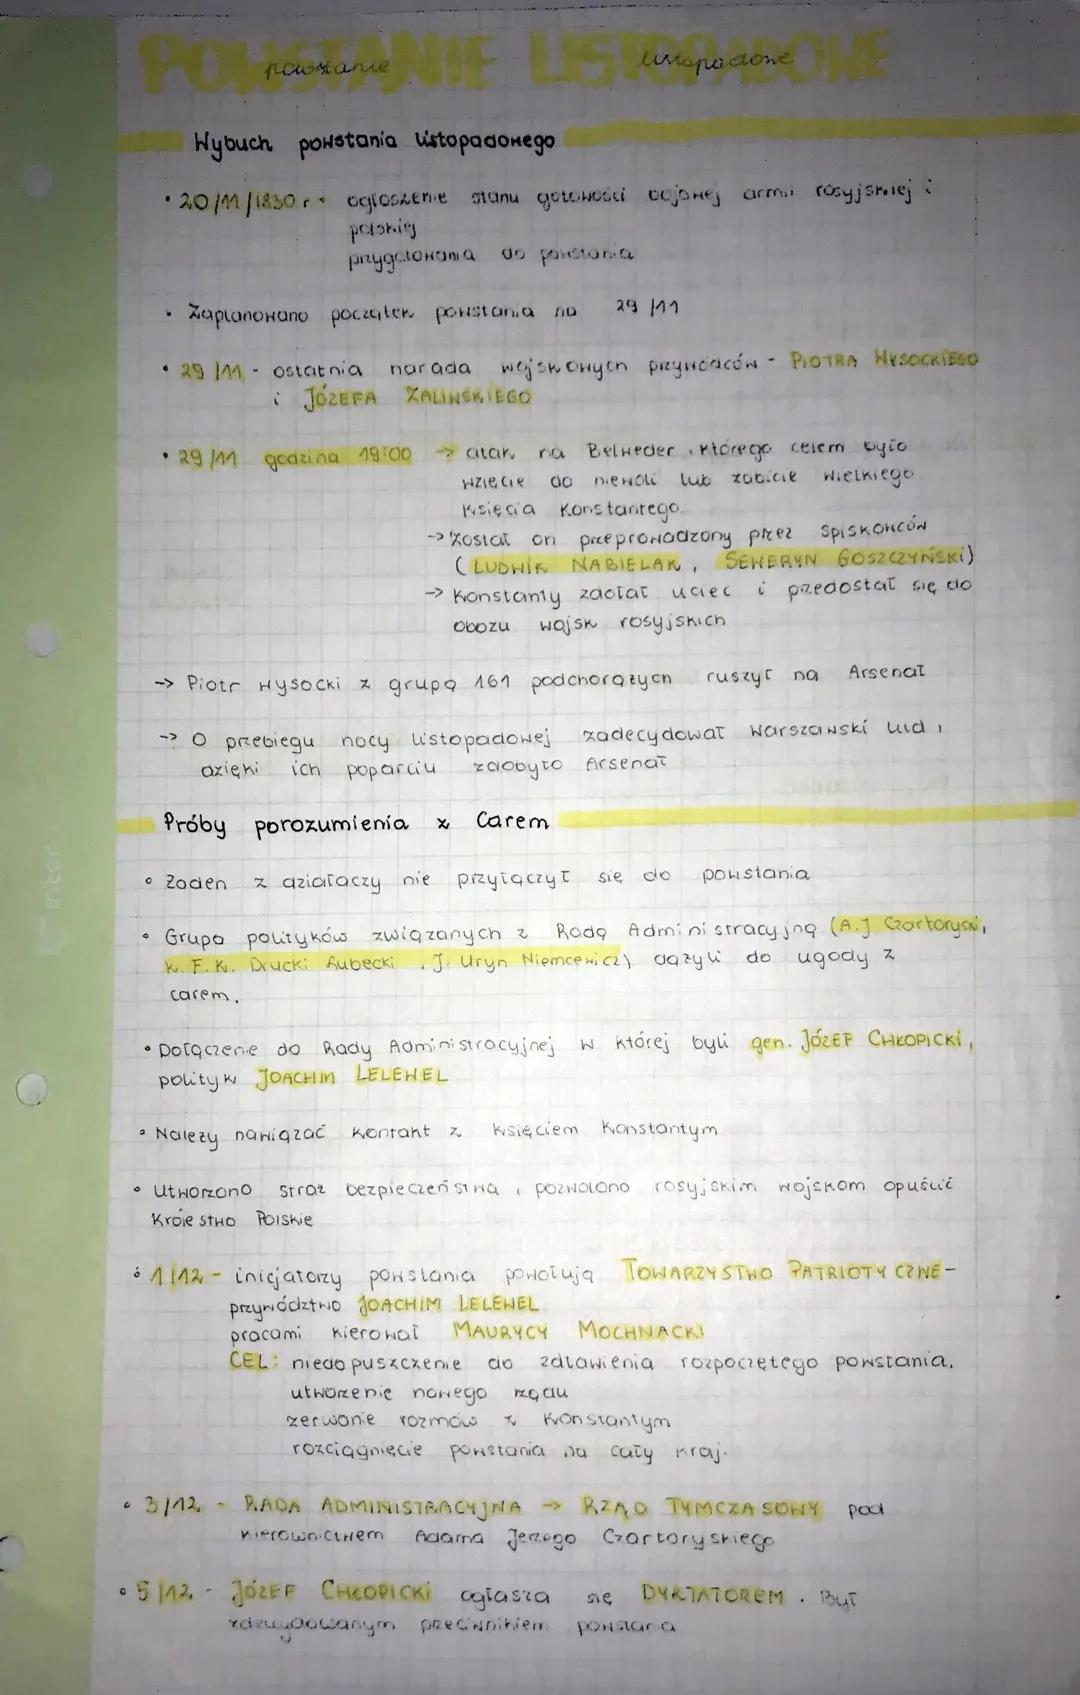 POWSTANIE LISTOPADOWE
powstanie listopadowe
Wybuch powstania listopadowego
• 20/11/1830 r - ogłoszenie stanu gotowości bojowej armii rosyjskiej i
polskiej
przygotowania do powstania
• Zaplanowano początek powstania na 29/11
• 29/11 - ostatnia narada wojskowych przywódców - PIOTRA WYSOCKIEGO
i JÓZEFA ZALIWSKIEGO
• 29/11 godzina 19:00 → atak na Belweder, którego celem było
wzięcie do niewoli lub zabicie wielkiego
Księcia Konstantego.
→ Został on przeprowadzony przez spiskowców
(LUDWIK NABIELAK, SEWERYN GOSZCZYŃSKI)
→ Konstanty zdołał uciec i przedostał się do
obozu wojsk rosyjskich
→ Piotr Wysocki z grupą 161 podchorążych ruszył na Arsenał
→ O przebiegu nocy listopadowej zadecydował warszawski lud,
dzięki ich poparciu zdobyto Arsenał
Próby porozumienia z Carem
• Żaden z działaczy nie przyłączył się do powstania
• Grupa polityków związanych z Radą Administracyjną (A.J Czartoryski,
K. F. K. Drucki Lubecki, J. Uryn Niemcewicz) dążyli do ugody z
carem.
• Dołączenie do Rady Administracyjnej w której byli gen. JÓZEF CHŁOPICKI,
polityk JOACHIM LELEWEL
• Należy nawiązać kontakt z Księciem Konstantym
• Utworzono straż bezpieczeństwa, pozwolono rosyjskim wojskom opuścić
Królestwo Polskie
• 1/12 - inicjatorzy powstania powołują TOWARZYSTWO PATRIOTYCZNE -
przywództwo JOACHIM LELEWEL
pracami kierował MAURYCY MOCHNACKI
CEL: niedopuszczenie do zdławienia rozpoczętego powstania.
utworzenie nowego rządu
zerwanie rozmów z Konstantym
rozciągnięcie powstania na cały kraj.
• 3/12 - RADA ADMINISTRACYJNA → RZĄD TYMCZASOWY pod
kierownictwem Adama Jerzego Czartoryskiego
• 5/12 - JÓZEF CHŁOPICKI ogłasza się DYKTATOREM. Był
zdecydowanym przeciwnikiem powstania
inter